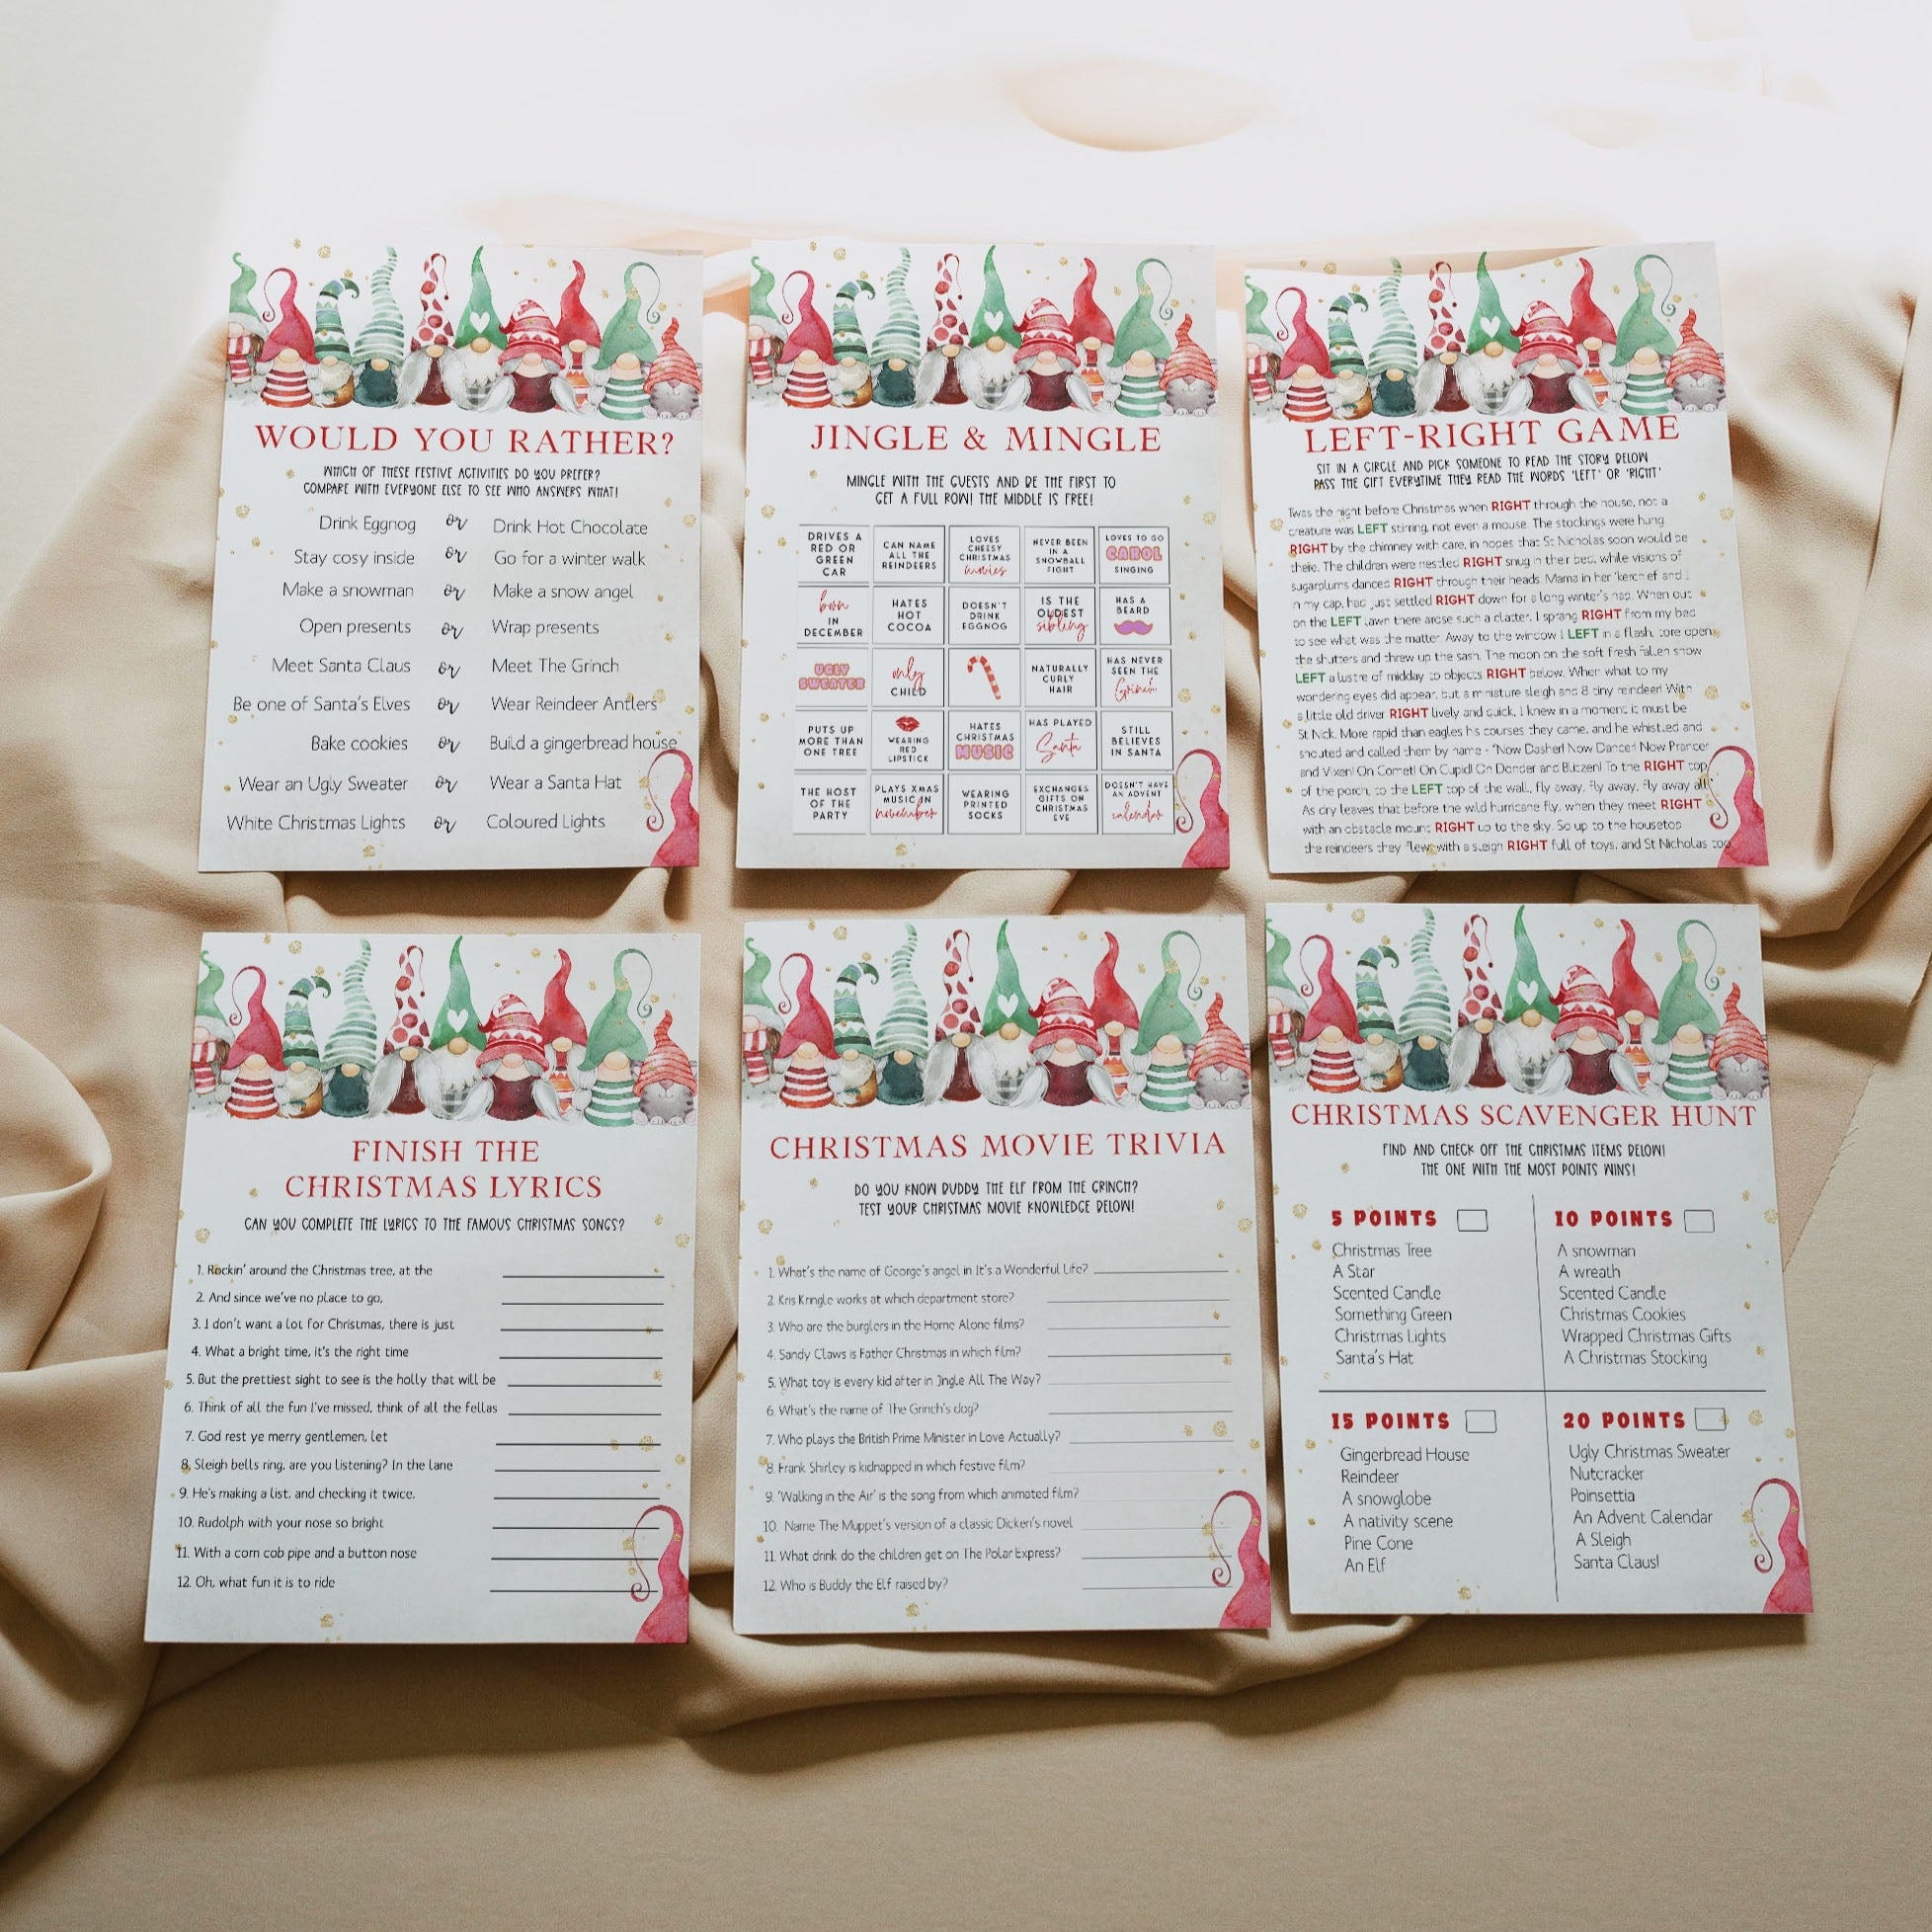 WOULD YOU RATHER?
WHICH OF THESE FESTIVE ACTIVITIES DO YOU PREFER?
COMPARE WITH EVERYONE ELSE TO SEE WHO ANSWERS WHAT!
Drink Eggnog or Drink Hot Chocolate
Stay cosy inside or Go for a winter walk
Make a snowman or Make a snow angel
Open presents or Wrap presents
Meet Santa Claus or Meet The Grinch
Be one of Santa's Elves or Wear Reindeer Antlers
Bake cookies or Build a gingerbread house
Wear an Ugly Sweater or Wear a Santa Hat
White Christmas Lights or Coloured Lights
JINGLE & MINGLE
MINGLE WITH THE GUESTS AND BE THE FIRST TO
GET A FULL ROW! THE MIDDLE IS FREE!
DRIVES A
RED OR
GREEN
CAR
CAN NAME
ALL THE
REINDEERS
LOVES
CHEESY
CHRISTMAS
movies
NEVER BEEN
IN A
SNOWBALL
FIGHT
LOVES TO GO
CAROL
SINGING
born
IN
DECEMBER
HATES
HOT
COCOA
DOESN'T
DRINK
EGGNOG
IS THE
OLDEST
sibling
HAS A
BEARD
UGLY
SWEATER
only
CHILD
NATURALLY
CURLY
HAIR
HAS NEVER
SEEN THE
Grinch
PUTS UP
MORE THAN
ONE TREE
WEARING
RED
LIPSTICK
HATES
CHRISTMAS
MUSIC
HAS PLAYED
Santa
STILL
BELIEVES
IN SANTA
THE HOST
OF THE
PARTY
PLAYS XMAS
MUSIC IN
november
WEARING
PRINTED
SOCKS
EXCHANGES
GIFTS ON
CHRISTMAS
EVE
DOESN'T HAVE
AN ADVENT
calendar
LEFT-RIGHT GAME
SIT IN A CIRCLE AND PICK SOMEONE TO READ THE STORY BELOW
PASS THE GIFT EVERYTIME THEY READ THE WORDS 'LEFT' OR 'RIGHT'
Twas the night before Christmas when RIGHT through the house, not a
creature was LEFT stirring, not even a mouse. The stockings were hung
RIGHT by the chimney with care, in hopes that St Nicholas soon would be
there. The children were nestled RIGHT snug in their bed, while visions of
sugarplums danced RIGHT through their heads. Mama in her 'kerchief and I
in my cap, had just settled RIGHT down for a long winter's nap. When out
on the LEFT lawn there arose such a clatter, I sprang RIGHT from my bed
to see what was the matter. Away to the window I LEFT in a flash, tore open
the shutters and threw up the sash. The moon on the soft fresh fallen snow
LEFT a lustre of midday to objects RIGHT below. When what to my
wondering eyes did appear, but a miniature sleigh and 8 tiny reindeer! With
a little old driver RIGHT lively and quick, I knew in a moment it must be
St Nick. More rapid than eagles his courses they came, and he whistled and
shouted and called them by name - "Now Dasher! Now Dancer! Now Prancer
and Vixen! On Comet! On Cupid! On Donder and Blitzen! To the RIGHT top
of the porch, to the LEFT top of the wall, fly away, fly away, fly away all!"
As dry leaves that before the wild hurricane fly, when they meet RIGHT
with an obstacle mount RIGHT up to the sky. So up to the housetop
the reindeers they flew, with a sleigh RIGHT full of toys, and St Nicholas too.
FINISH THE
CHRISTMAS LYRICS
CAN YOU COMPLETE THE LYRICS TO THE FAMOUS CHRISTMAS SONGS?
1. Rockin' around the Christmas tree, at the
2. And since we've no place to go,
3. I don't want a lot for Christmas, there is just
4. What a bright time, it's the right time
5. But the prettiest sight to see is the holly that will be
6. Think of all the fun I've missed, think of all the fellas
7. God rest ye merry gentlemen, let
8. Sleigh bells ring, are you listening? In the lane
9. He's making a list, and checking it twice,
10. Rudolph with your nose so bright
11. With a corn cob pipe and a button nose
12. Oh, what fun it is to ride
CHRISTMAS MOVIE TRIVIA
DO YOU KNOW BUDDY THE ELF FROM THE GRINCH?
TEST YOUR CHRISTMAS MOVIE KNOWLEDGE BELOW!
1. What's the name of George's angel in It's a Wonderful Life?
2. Kris Kringle works at which department store?
3. Who are the burglers in the Home Alone films?
4. Sandy Claws is Father Christmas in which film?
5. What toy is every kid after in Jingle All The Way?
6. What's the name of The Grinch's dog?
7. Who plays the British Prime Minister in Love Actually?
8. Frank Shirley is kidnapped in which festive film?
9. 'Walking in the Air' is the song from which animated film?
10. Name The Muppet's version of a classic Dicken's novel
11. What drink do the children get on The Polar Express?
12. Who is Buddy the Elf raised by?
CHRISTMAS SCAVENGER HUNT
FIND AND CHECK OFF THE CHRISTMAS ITEMS BELOW!
THE ONE WITH THE MOST POINTS WINS!
5 POINTS
Christmas Tree
A Star
Scented Candle
Something Green
Christmas Lights
Santa's Hat
10 POINTS
A snowman
A wreath
Scented Candle
Christmas Cookies
Wrapped Christmas Gifts
A Christmas Stocking
15 POINTS
Gingerbread House
Reindeer
A snowglobe
A nativity scene
Pine Cone
An Elf
20 POINTS
Ugly Christmas Sweater
Nutcracker
Poinsettia
An Advent Calendar
A Sleigh
Santa Claus!